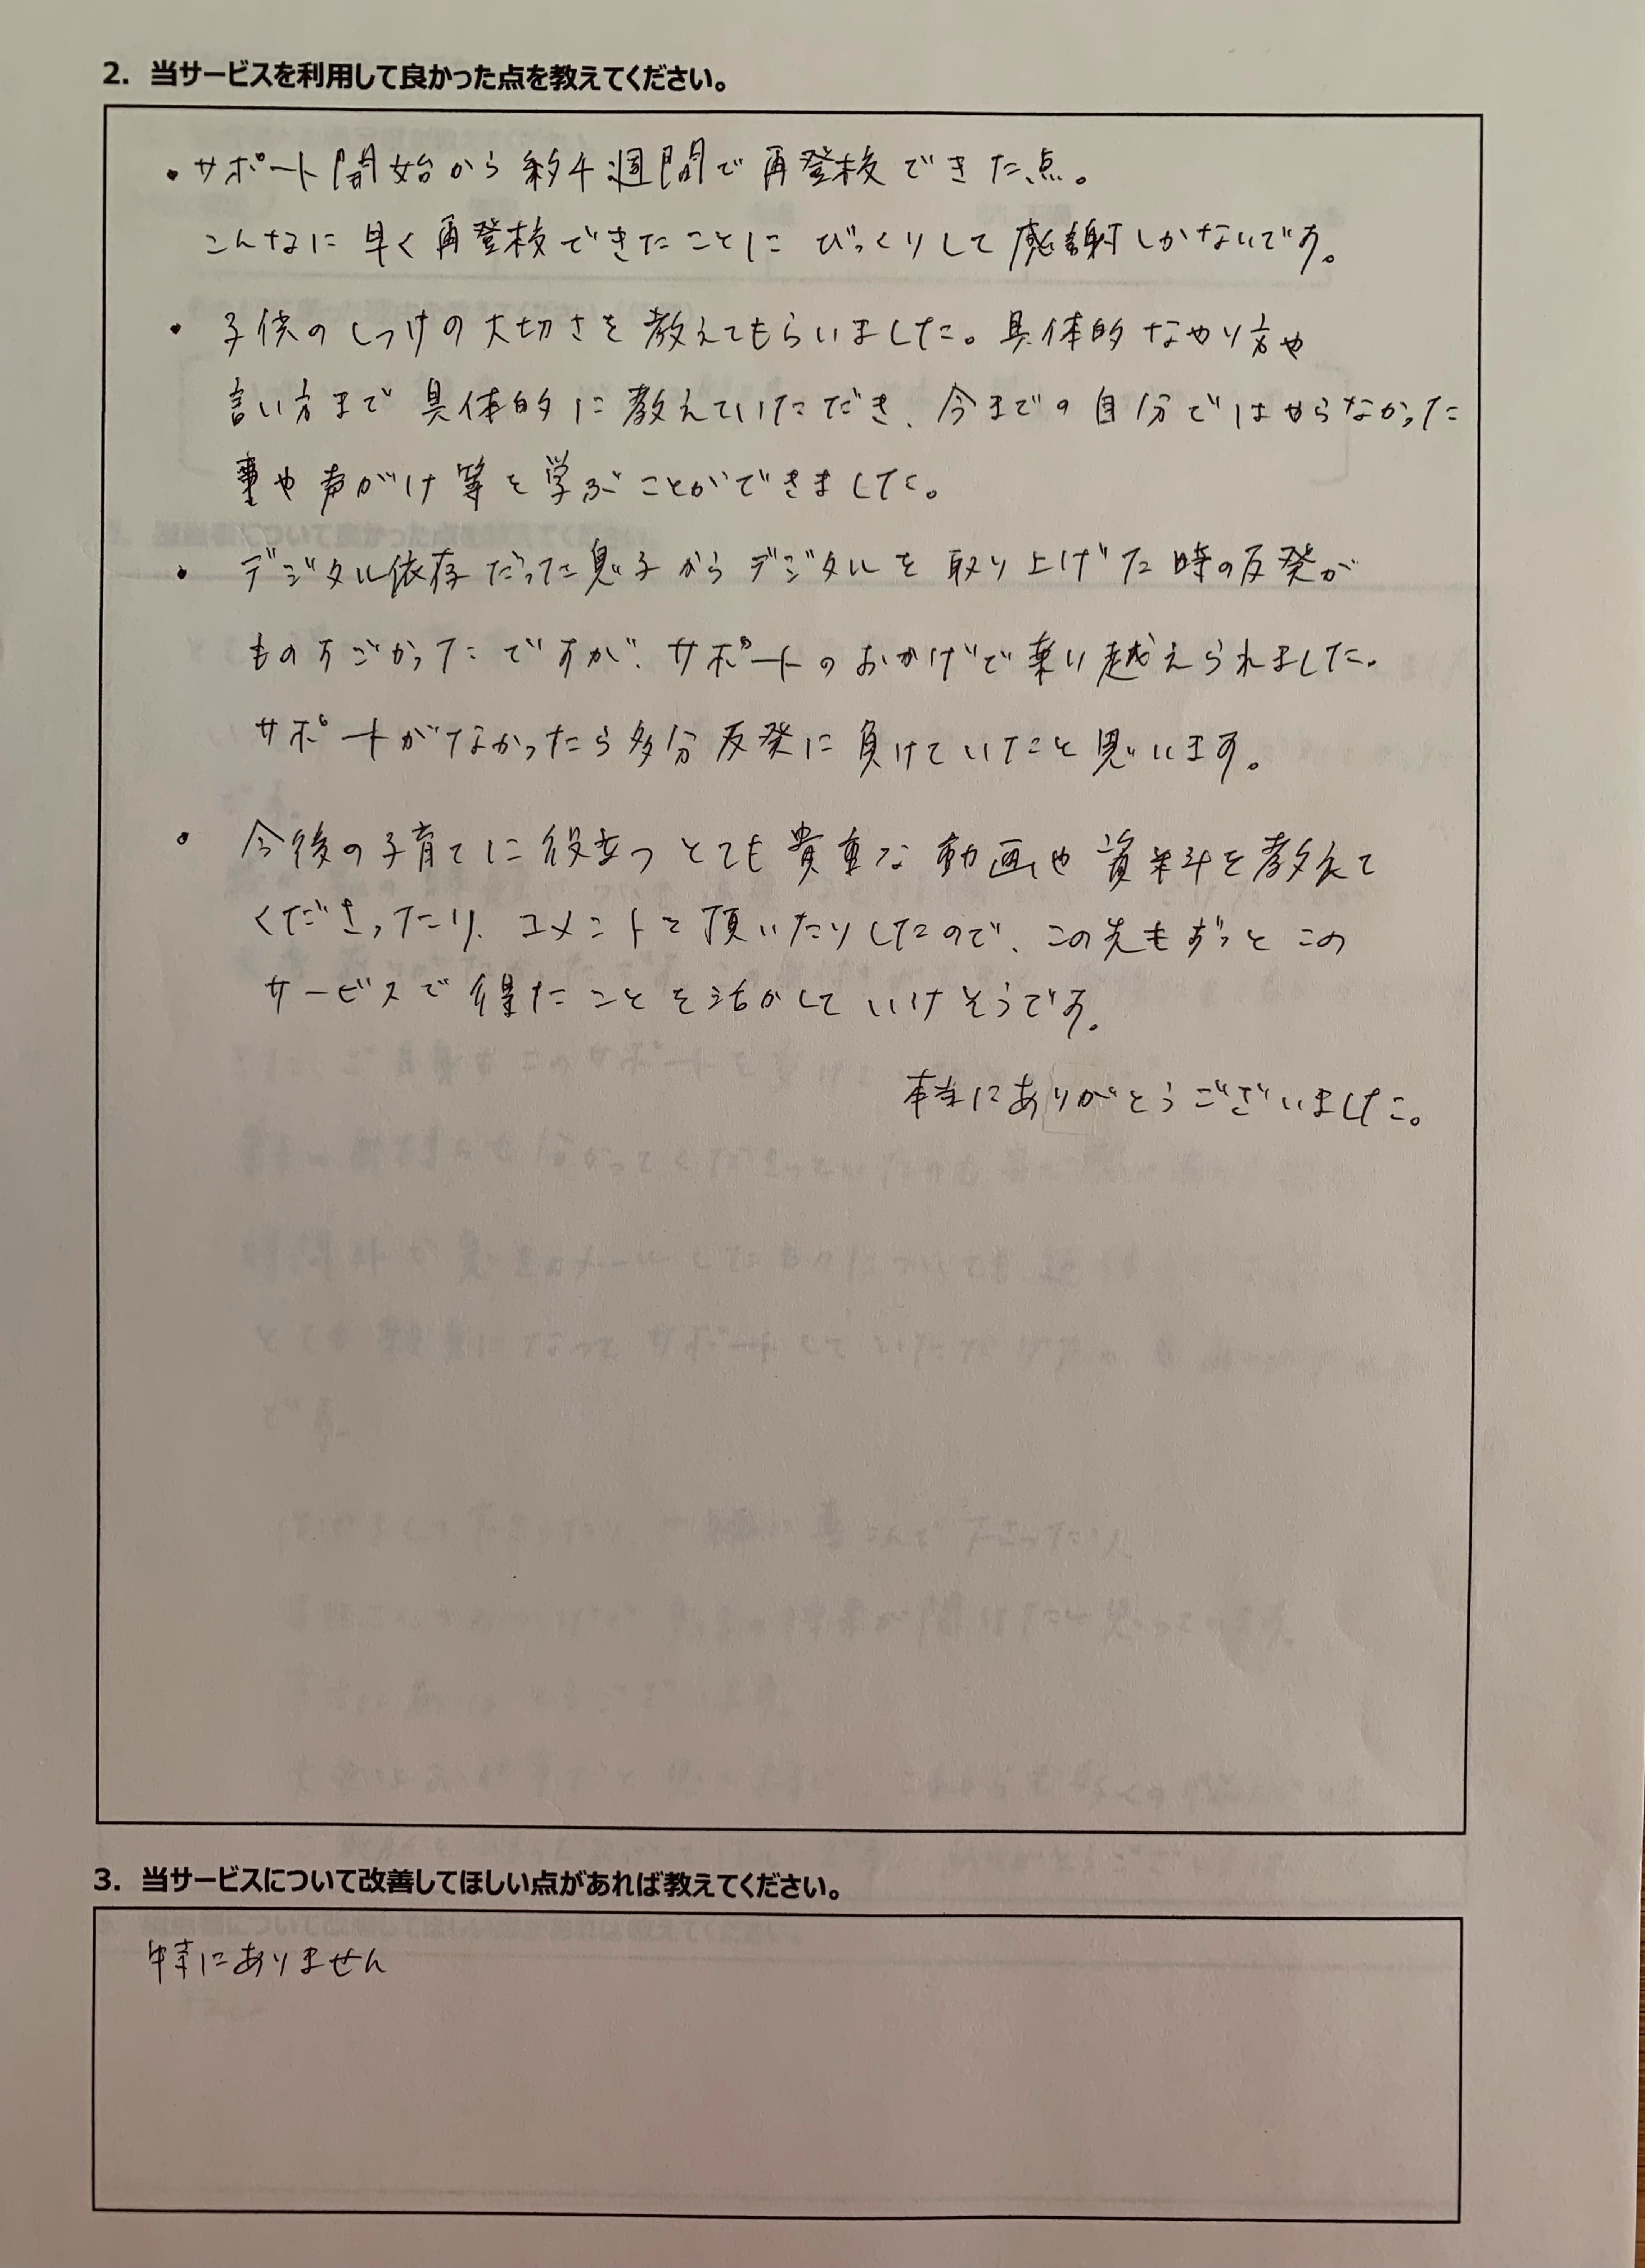 2. 当サービスを利用して良かった点を教えてください。
・サポート開始から約4週間で再登校できた点。
こんなに早く再登校できたことにびっくりして感謝しかないです。
・子供のしつけの大切さを教えてもらいました。具体的なやり方や
言い方まで具体的に教えていただき、今までの自分では分からなかった
事や声がけ等を学ぶことができました。
・デジタル依存だった息子からデジタルを取り上げた時の反発が
ものすごかったですが、サポートのおかげで乗り越えられました。
サポートがなかったら多分反発に負けていたこと思います。
・今後の子育てに役立つとても貴重な動画や資料を教えて
くださったり、コメントを頂いたりしたので、この先もずっとこの
サービスで得たことを活かしていけそうです。
本当にありがとうございました。
3. 当サービスについて改善してほしい点があれば教えてください。
特にありません